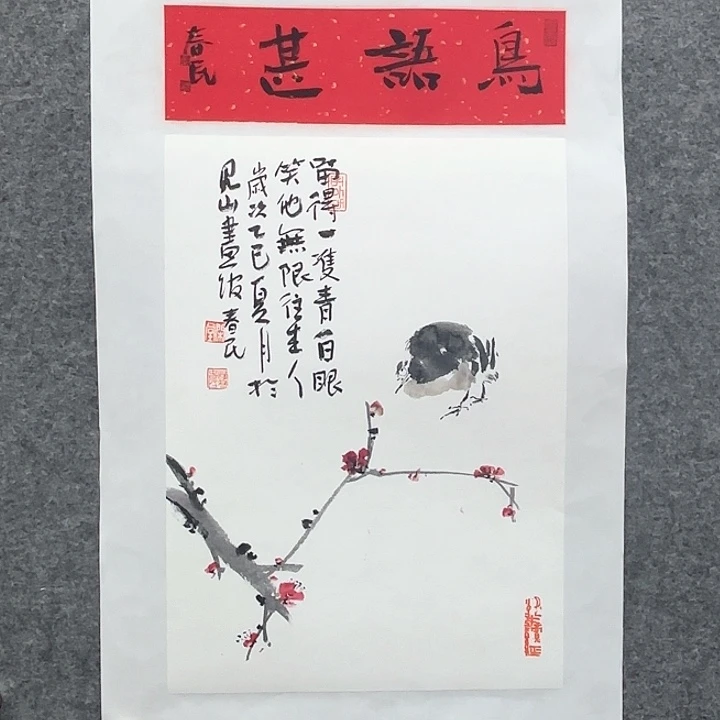 鳥語甚
春民
留得一隻青白眼
笑他無限往来人
歲次乙巳夏月於
見山畫 春民